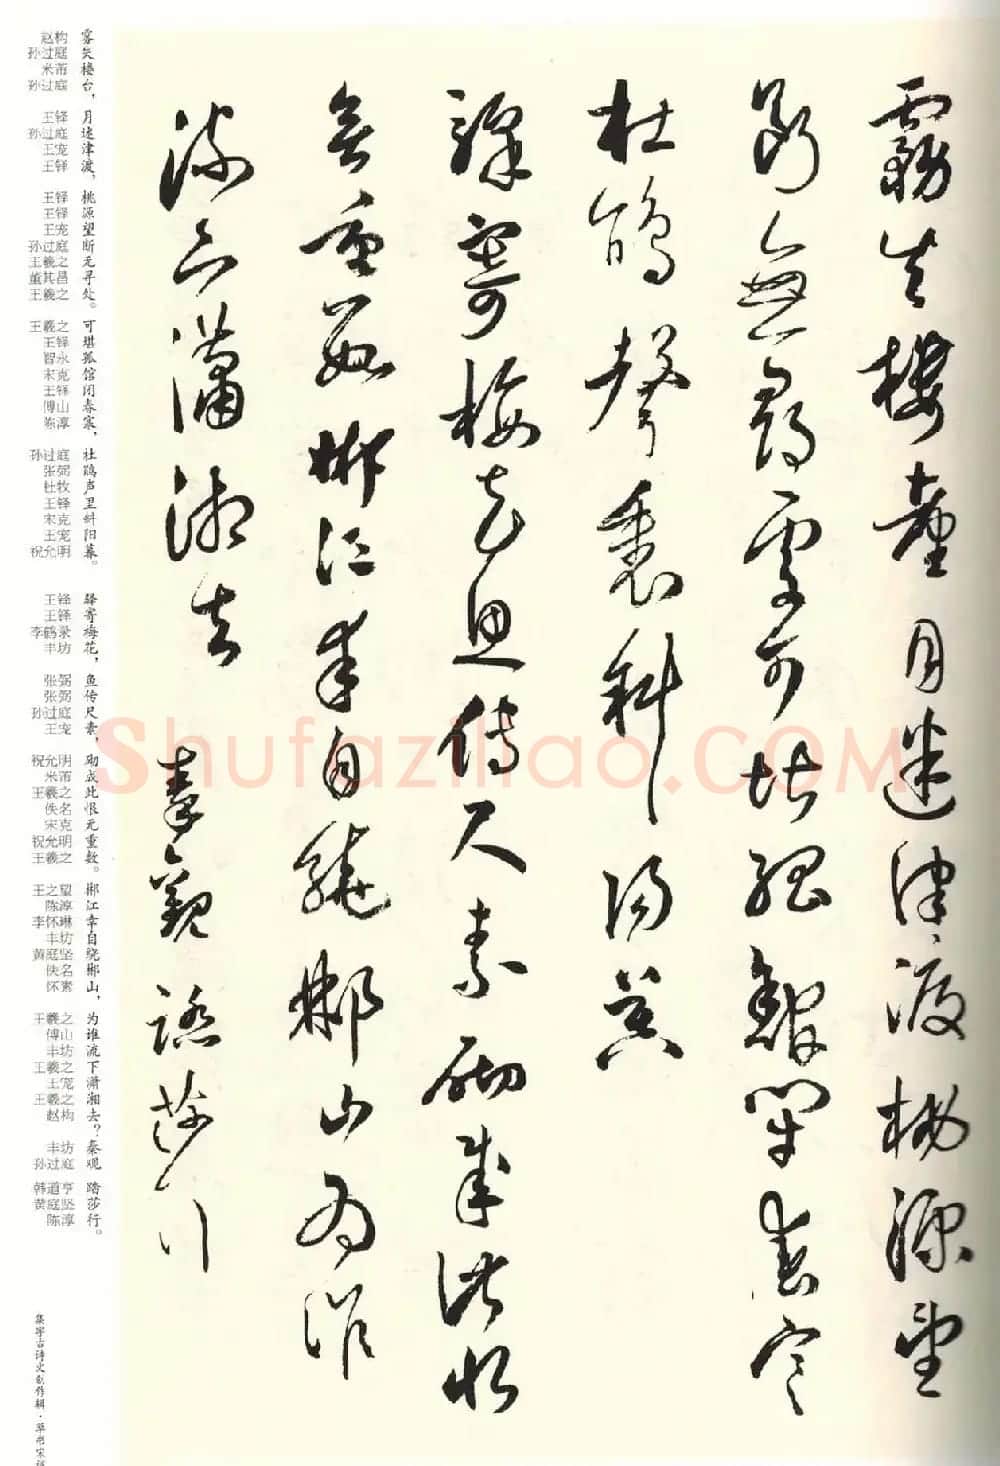 霧失樓臺月迷津渡桃源望
斷無尋處可堪孤館閉春寒
杜鵑聲裏斜陽暮
驛寄梅花魚傳尺素砌成此恨
無重數郴江幸自繞郴山為誰
流下瀟湘去 秦觀踏莎行
赵构 雾
孙过庭 失
米芾 楼
孙过庭 台，
王铎 月
孙过庭 迷
王宠 津
王铎 渡，
王铎 桃
王铎 源
王宠 望
孙过庭 断
王羲之 无
董其昌 寻
王羲之 处。
王羲之 可
王铎 堪
智永 孤
宋克 馆
王铎 闭
傅山 春
陈淳 寒，
孙过庭 杜
张弼 鹃
杜牧 声
王铎 里
宋克 斜
王宠 阳
祝允明 暮。
王铎 驿
王铎 寄
李鹤录 梅
丰坊 花，
张弼 鱼
张弼 传
孙过庭 尺
王宠 素，
祝允明 砌
米芾 成
王羲之 此
佚名 恨
宋克 无
祝允明 重
王羲之 数。
王之望 郴
陈淳 江
李怀琳 幸
丰坊 自
黄庭坚 绕
佚名 郴
怀素 山，
王羲之 为
傅山 谁
丰坊 流
王羲之 下
王宠 潇
王羲之 湘
赵构 去？
丰坊 秦
孙过庭 观
韩道亨 踏
黄庭坚 莎
陈淳 行。
集字古诗文创作辑·草书宋
Shufaziliao.COM